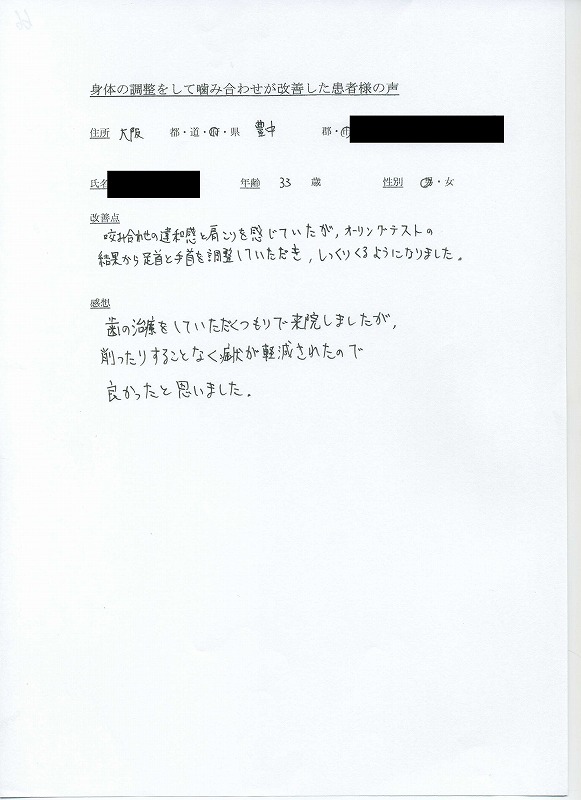 身体の調整をして噛み合わせが改善した患者様の声
住所 大阪 都・道・府・県 豊中 郡・市
氏名 年齢 33 歳 性別 男・女
改善点
咬み合わせの違和感と肩こりを感じていたが、オーリングテストの
結果から足首と手首を調整していただき、しっくりくるようになりました。
感想
歯の治療をしていただくつもりで来院しましたが、
削ったりすることなく症状が軽減されたので
良かったと思いました。